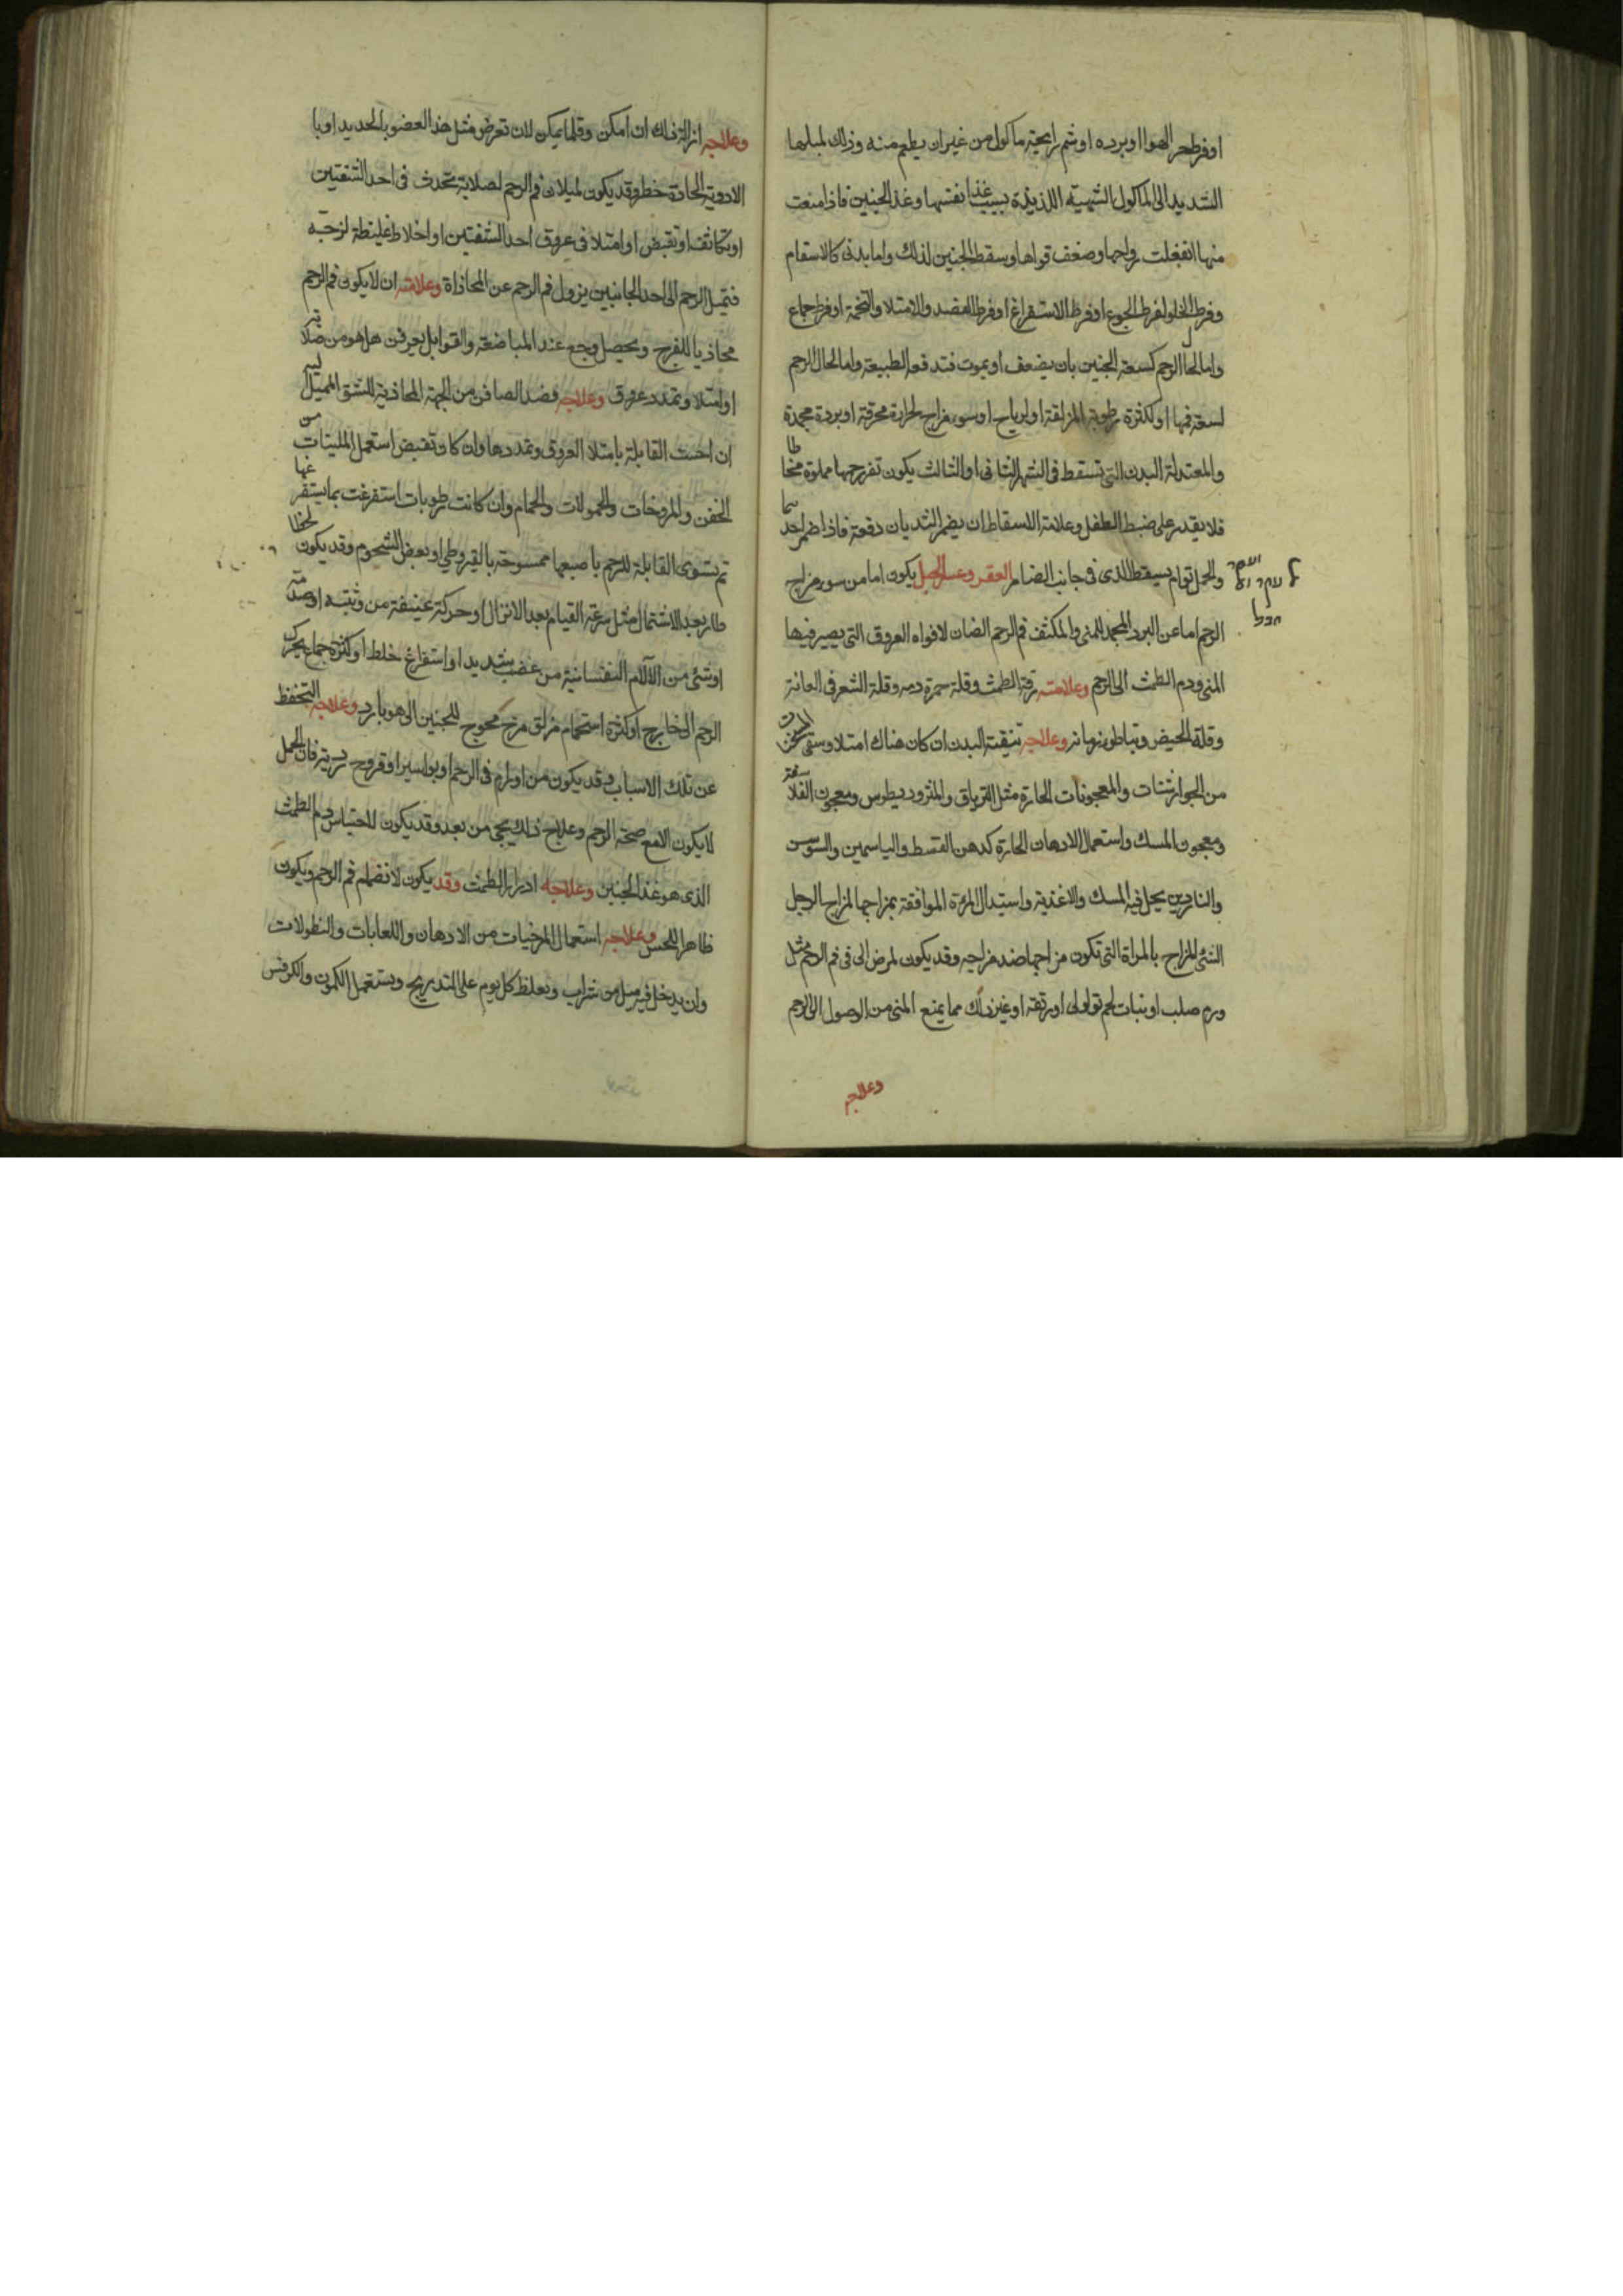 اوفرط حر الهوا او برده او شم رايحة ماكول من غير ان يطعم منه وذلك لميلها
الشديد الى الماكول الشهية اللذيذة بسبب غذا نفسها وغذا الجنين فاذا منعت
منها انفعلت روحها وضعف قواها وسقط الجنين لذلك واما بدنى كالاسقام
وفرط الخلو لفرط الجوع او فرط الاستفراغ او فرط الفصد والامتلا والتخمة او فرط جماع
واما لحال الرحم كسعة الجنين بان يضعف او يموت فتدفعه الطبيعة واما لحال الرحم
لسعة فمها او لكثرة رطوبة المزلقة او لرياح او سوء مزاج لحرارة محرقة او بردة مجمدة
والمعتدلة البدن التى تسقط فى الشهر الثانى او الثالث يكون تقر رحمها مملوة مخاطا
فلا يقدر على ضبط الطفل وعلامة الاسقاط ان يضمر الثديان دفعة فاذا ضمر احدهما
والحمل توام يسقط الذى فى جانب الضامر العقر وعسر الحبل يكون اما من سوء مزاج
الرحم اما عن البرد المجمد للمنى والمكثف فم الرحم الضان لافواه العروق التى يصير فيها
المنى ودم الطمث الى الرحم وعلامته رقة الطمث وقلة حمرة دمه وقلة الشعر فى العانة
وقلة الحيض وتباطو زمانه وعلاجه تنقية البدن ان كان هناك امتلا وسقى المسخن
من الجوارشنات والمعجونات الحارة مثل الترياق والمثروديطوس ومعجون الفلاسفة
ومعجون المسك واستعمال الادهان الحارة كدهن القسط والياسمين والسوسن
والناردين يحل فيه المسك والاغذية واستبدال المرءة الموافقة بمزاجها لمزاج الرجل
الشئ المزاج بالمراة التى تكون مزاجها ضد مزاجه وقد يكون لمرض الى فى فم الرحم مثل
ورم صلب او نبات لحم ثولولى او رتقه او غير ذلك مما يمنع المنى من الوصول الى الرحم
وعلاجه
وعلاجه ازالة ذلك ان امكن وقلما يمكن لان تعرض مثل هذا العضو بالحديد او با
الادوية الحادة خطر وقد يكون لميلان فم الرحم لصلابة تحدث فى احد الشفتين
او تكاثف او تقبض او امتلا فى عروق احد الشفتين او اخلاط غليظة لزجة
فتميل الرحم الى احد الجانبين يزول فم الرحم عن المحاذاة وعلامته ان لا يكون فم الرحم
محاذيا للفرج ويحصل وجع عند المباضعة والقوابل يعرفن هل هو من صلابة
او امتلا وتمدد عروق وعلاجه فصد الصافن من الجهة المحاذية للشق المميل اليه
ان احست القابلة بامتلا العروق وتمددها وان كان تقبض استعمل الملينات من
الحقن والمروخات والحمولات والحمام وان كانت رطوبات استفرغت بما يستفرغها
ثم تسوى القابلة للرحم باصبعها ممسوحة بالقيروطى او بعض الشحوم وقد يكون لخطا
طار بعد الاشتمال مثل سرعة القيام بعد الانزال او حركة عنيفة من وثبة او صدمة
او شئ من الآلام النفسانية من غضب شديد او استفراغ خلط او كثرة جماع يحرك
الرحم الى خارج او كثرة استحمام مزلق مرخ محوج للجنين الى هوا بارد وعلاجه التحفظ
عن تلك الاسباب وقد يكون من اورام فى الرحم او بواسير او قروح ردية فان الحمل
لا يكون الا مع صحة الرحم وعلاج ذلك يجى من بعد وقد يكون لاحتباس دم الطمث
الذى هو غذا الجنين وعلاجه ادرار الطمث وقد يكون لانضمام فم الرحم ويكون
ظاهرا للحس وعلاجه استعمال المرخيات من الادهان واللعابات والنطولات
وان يدخل فيه ميل من شراب وتغلظ كل يوم على التدريج ويستعمل الكمون والكرفس